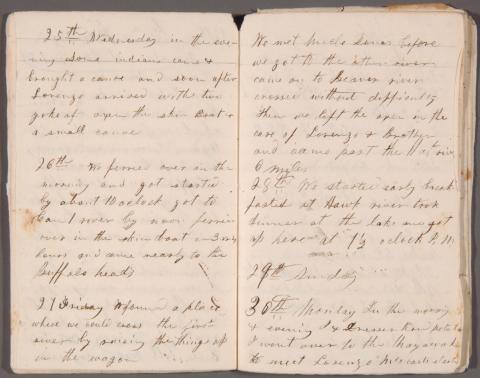 25th Wednesday in the eve-
ning some indians came &
brought a canoe and soon after
Lorenzo arrived with two
yoke of oxen the skin Boat &
a small canoe
26th We ferried over in the
morning and got started
by about 10 oclock got to
river by noon ferried
over in the skin boat in 3
hours and came nearly to the
Buffalo heads
27 Friday found a place
where we could cross the
river by raising the things up
in the wagon
We met Uncle before
we got to the other river
came on to Beaver river
crossed without difficulty
then we left the oxen in the
care of Lorenzo & Brother
and came past the
6 miles
28th We started early break
fasted at river took
dinner at the lake and got
up here at 1½ oclock P.M.
29th Sunday
30th Monday In the morning
& evening
I went over to the
to meet Lorenzo